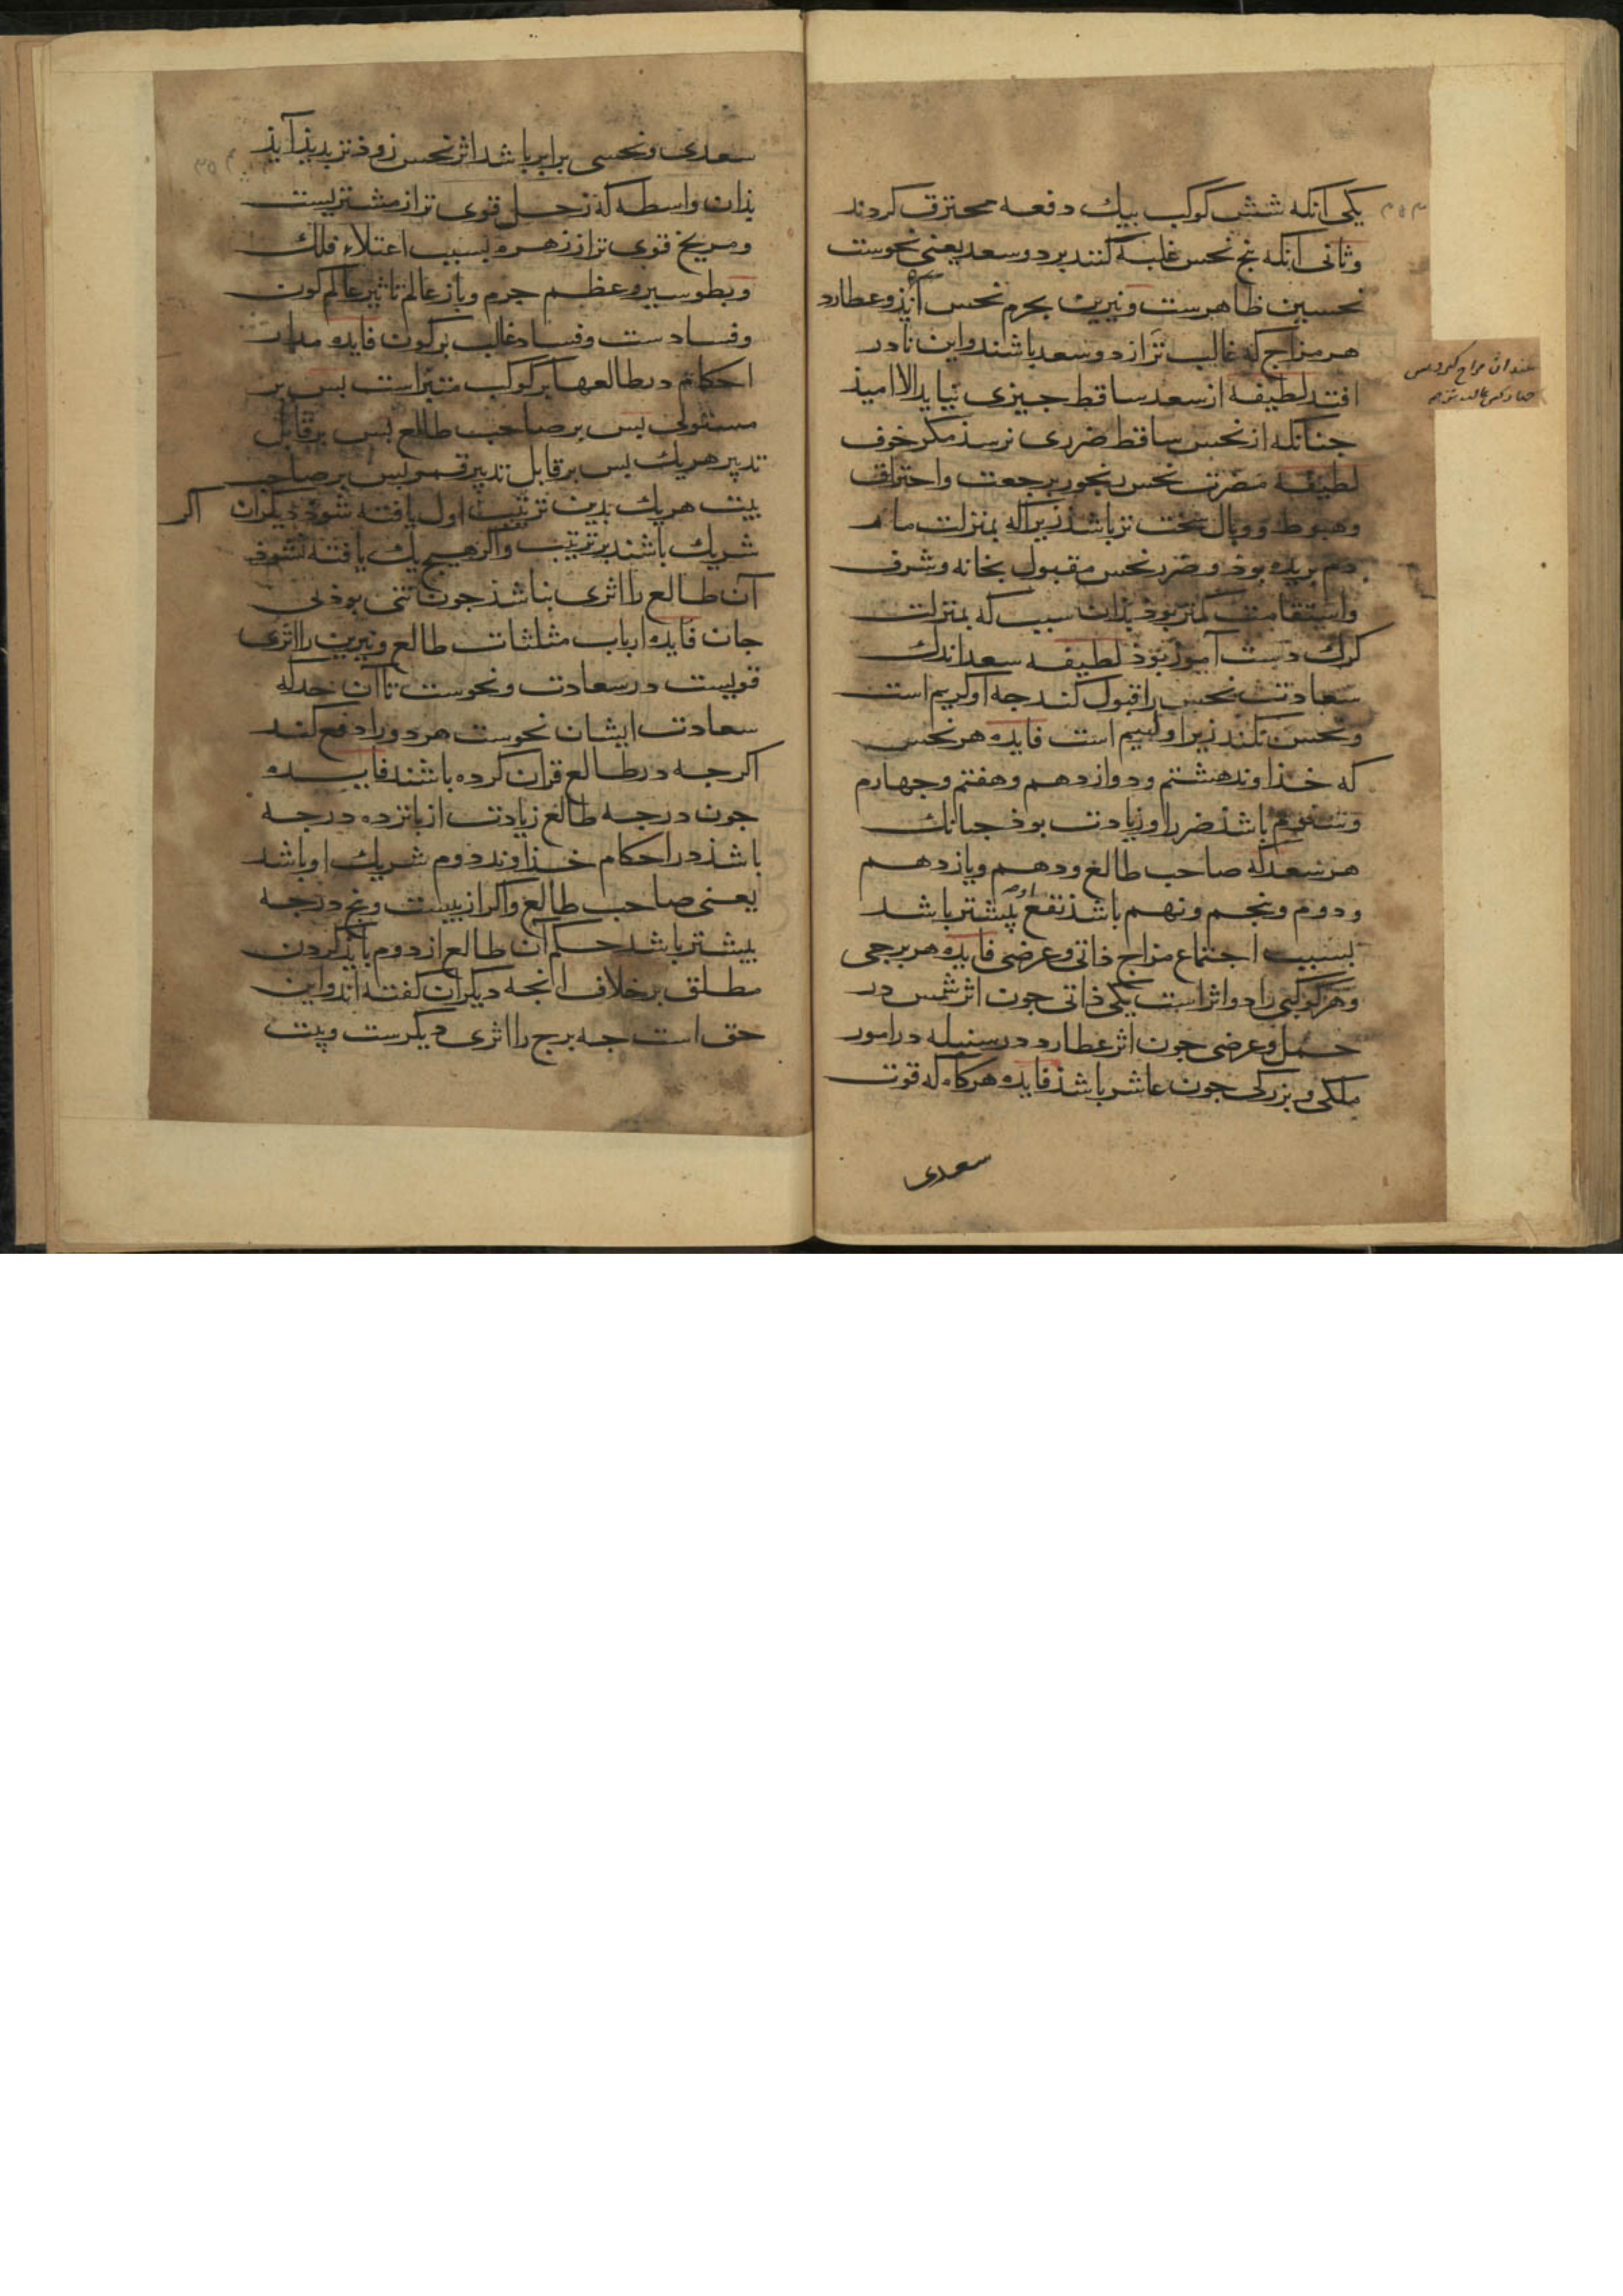 یکی آنکه شش کوکب بیک دفعه محترق کردند
وثانی آنکه پنج نحس غلبه کنند بر دو سعد یعنی نحوست
نحسین ظاهرست ونیرین بجرم نحس آیذ وعطارد
هر مزاج که غالب تر از دو سعد باشند واین نادر
افتد لطیفه از سعد ساقط جیزی نیاید الا امیذ
جنانکه از نحس ساقط ضرری نرسذ مکر خوف
لطیفه مضرت نحس نحور برجعت واحتراق
وهبوط ووبال سخت تر باشذ زیرا که بمنزلت مار
دم بریده بوذ وضرر نحس مقبول بخانه وشرف
واستقامت کمتر بوذ بذان سبب که بمنزلت
کرک دست آموز بوذ لطیفه سعد اندک
سعادت نحس را قبول کند جه او کریم است
ونحس نکند زیرا او لئیم است فایده هر نحس
که خذاوند هشتم ودوازدهم وهفتم وجهارم
وششم باشذ ضرر او زیادت بوذ جنانک
هر سعد که صاحب طالع ودهم ویازدهم
ودوم وپنجم ونهم باشذ نفع او بیشتر باشد
بسبب اجتماع مزاج ذاتی وعرضی فایده هر برجی
وهر کوکبی را دو اثر است یکی ذاتی جون اثر شمس در
حمل وعرضی جون اثر عطارد در سنبله در امور
ملکی وبزرکی جون عاشر باشذ فایده هرکاه که قوت
سعدی
سعدی ونحسی برابر باشد اثر نحس زوذتر بدیذ آیذ
بذان واسطه که زحل قوی تر از مشتریست
ومریخ قوی تر از زهره بسبب اعتلاء فلک
وبطو سیر وعظم جرم وباز عالم تاثیر عالم کون
وفسادست وفساد غالب بر کون فایده مدار
احکام در طالعها بر کوکب مبتزاست بس بر
مستولی بس بر صاحب طالع بس بر قابل
تدبیر هریک بس بر قابل تدبیر قمر وبس بر صاحب
بیت هریک بدین ترتیب اول یافته شوذ دیکران اکر
شریک باشند بر ترتیب واکر هیج یک یافته نشوذ
آن طالع را اثری نباشذ جون تنی بوذ بی
جان فایده ارباب مثلثات طالع ونیرین را اثری
قویست در سعادت ونحوست تا آن حد که
سعادت ایشان نحوست هر دو را دفع کند
اکرجه در طالع قران کرده باشند فایده
جون درجه طالع زیادت از پانزده درجه
باشذ در احکام خذاوند دوم شریک او باشد
یعنی صاحب طالع واکر از بیست وپنج درجه
بیشتر باشد حکم آن طالع از دوم باید کردن
مطلق بر خلاف آنجه دیکران کفته اند واین
حق است جه برج را اثری دیکرست وبیت